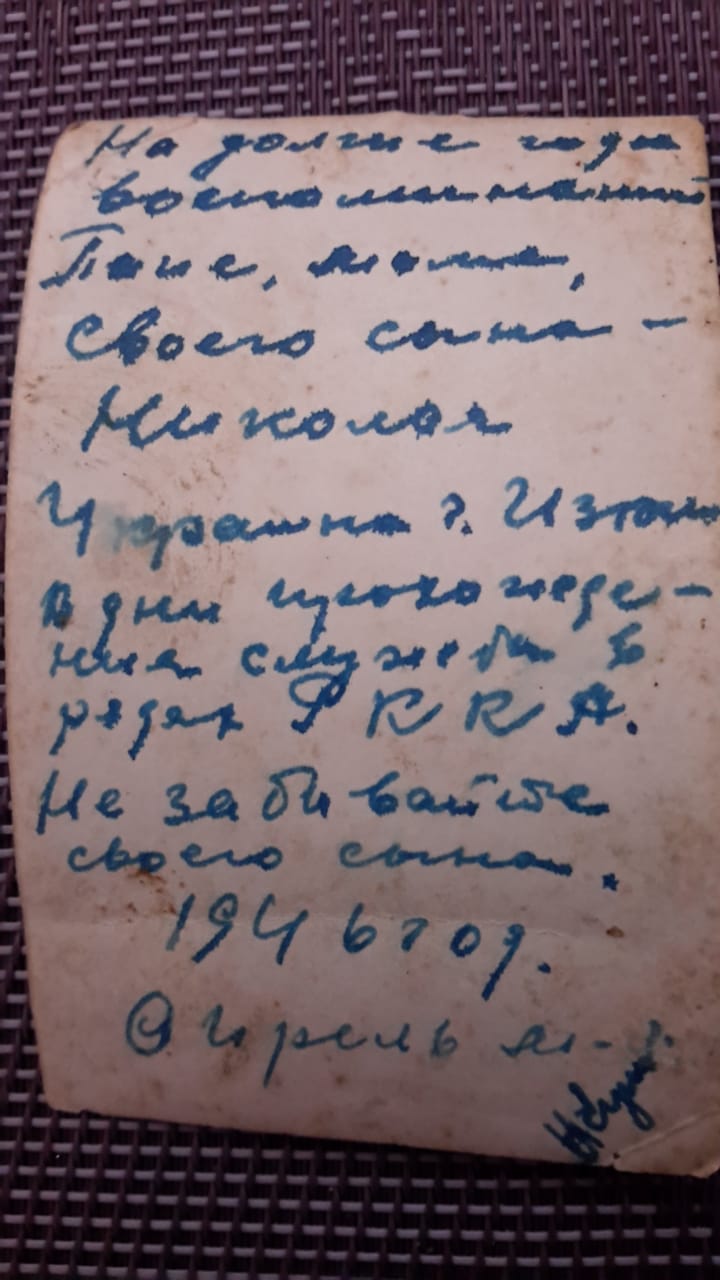 На долгие годы
воспоминаний
Папе, маме,
своего сына -
Николая
Украина г. Изюм
В дни прохожде-
ния службы в
рядах РККА.
Не забывайте
своего сына.
1946 год.
Апрель м-ц.